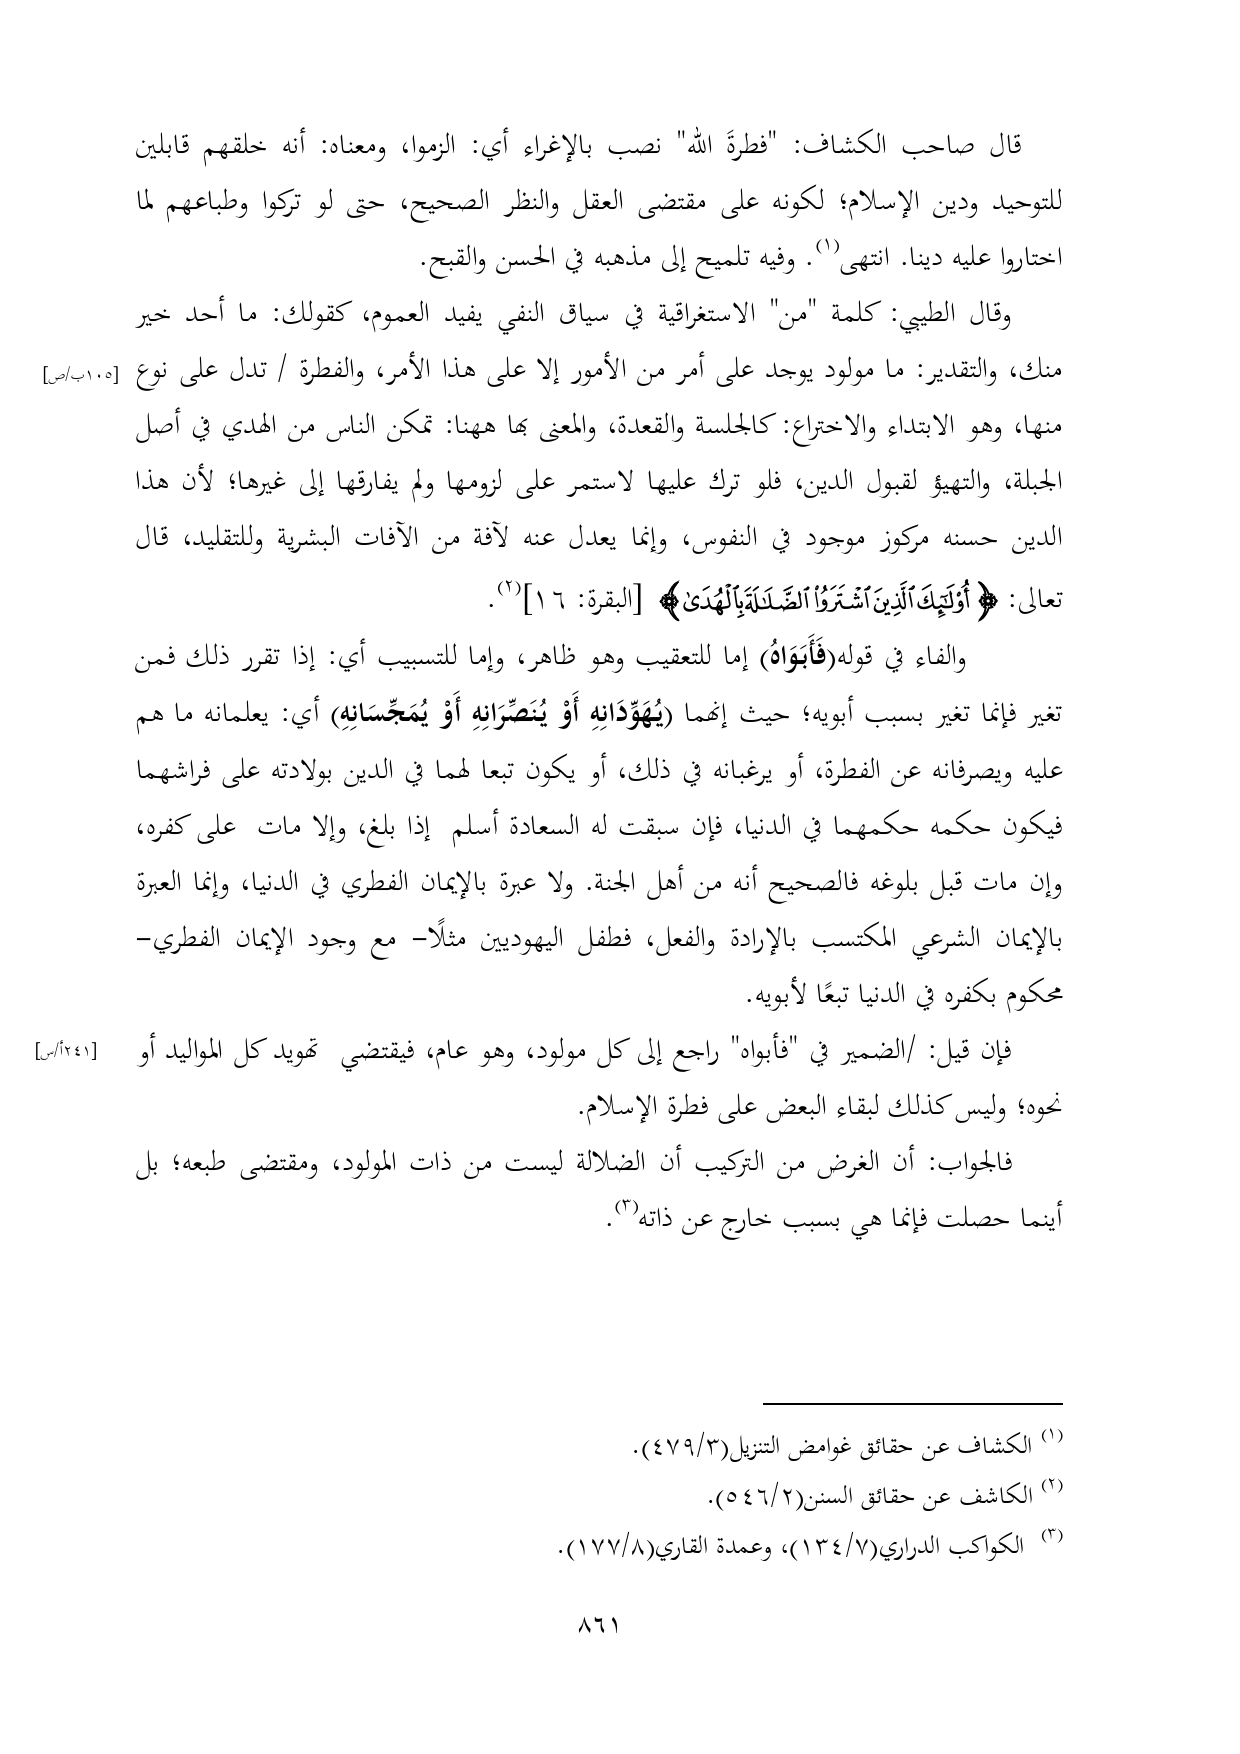 قال صاحب الكشاف: "فطرةَ الله" نصب بالإغراء أي: الزموا، ومعناه: أنه خلقهم قابلين
للتوحيد ودين الإسلام؛ لكونه على مقتضى العقل والنظر الصحيح، حتى لو تركوا وطباعهم لما
اختاروا عليه دينا. انتهى(١). وفيه تلميح إلى مذهبه في الحسن والقبح.
وقال الطيبي: كلمة "من" الاستغراقية في سياق النفي يفيد العموم، كقولك: ما أحد خير
منك، والتقدير: ما مولود يوجد على أمر من الأمور إلا على هذا الأمر، والفطرة / تدل على نوع [١٠٥ب/ص]
منها، وهو الابتداء والاختراع: كالجلسة والقعدة، والمعنى بها ههنا: تمكن الناس من الهدي في أصل
الجبلة، والتهيؤ لقبول الدين، فلو ترك عليها لاستمر على لزومها ولم يفارقها إلى غيرها؛ لأن هذا
الدين حسنه مركوز موجود في النفوس، وإنما يعدل عنه لآفة من الآفات البشرية وللتقليد، قال
تعالى: ﴿ أُوْلَٰٓئِكَ ٱلَّذِينَ ٱشۡتَرَوُاْ ٱلضَّلَٰلَةَ بِٱلۡهُدَىٰ ﴾ [البقرة: ١٦](٢).
والفاء في قوله(فَأَبَوَاهُ) إما للتعقيب وهو ظاهر، وإما للتسبيب أي: إذا تقرر ذلك فمن
تغير فإنما تغير بسبب أبويه؛ حيث إنهما (يُهَوِّدَانِهِ أَوْ يُنَصِّرَانِهِ أَوْ يُمَجِّسَانِهِ) أي: يعلمانه ما هم
عليه ويصرفانه عن الفطرة، أو يرغبانه في ذلك، أو يكون تبعا لهما في الدين بولادته على فراشهما
فيكون حكمه حكمهما في الدنيا، فإن سبقت له السعادة أسلم إذا بلغ، وإلا مات على كفره،
وإن مات قبل بلوغه فالصحيح أنه من أهل الجنة. ولا عبرة بالإيمان الفطري في الدنيا، وإنما العبرة
بالإيمان الشرعي المكتسب بالإرادة والفعل، فطفل اليهوديين مثلًا– مع وجود الإيمان الفطري–
محكوم بكفره في الدنيا تبعًا لأبويه.
فإن قيل: /الضمير في "فأبواه" راجع إلى كل مولود، وهو عام، فيقتضي تهويد كل المواليد أو [٢٤١أ/س]
نحوه؛ وليس كذلك لبقاء البعض على فطرة الإسلام.
فالجواب: أن الغرض من التركيب أن الضلالة ليست من ذات المولود، ومقتضى طبعه؛ بل
أينما حصلت فإنما هي بسبب خارج عن ذاته(٣).
(١) الكشاف عن حقائق غوامض التنزيل(٤٧٩/٣).
(٢) الكاشف عن حقائق السنن(٥٤٦/٢).
(٣) الكواكب الدراري(١٣٤/٧)، وعمدة القاري(١٧٧/٨).
٨٦١